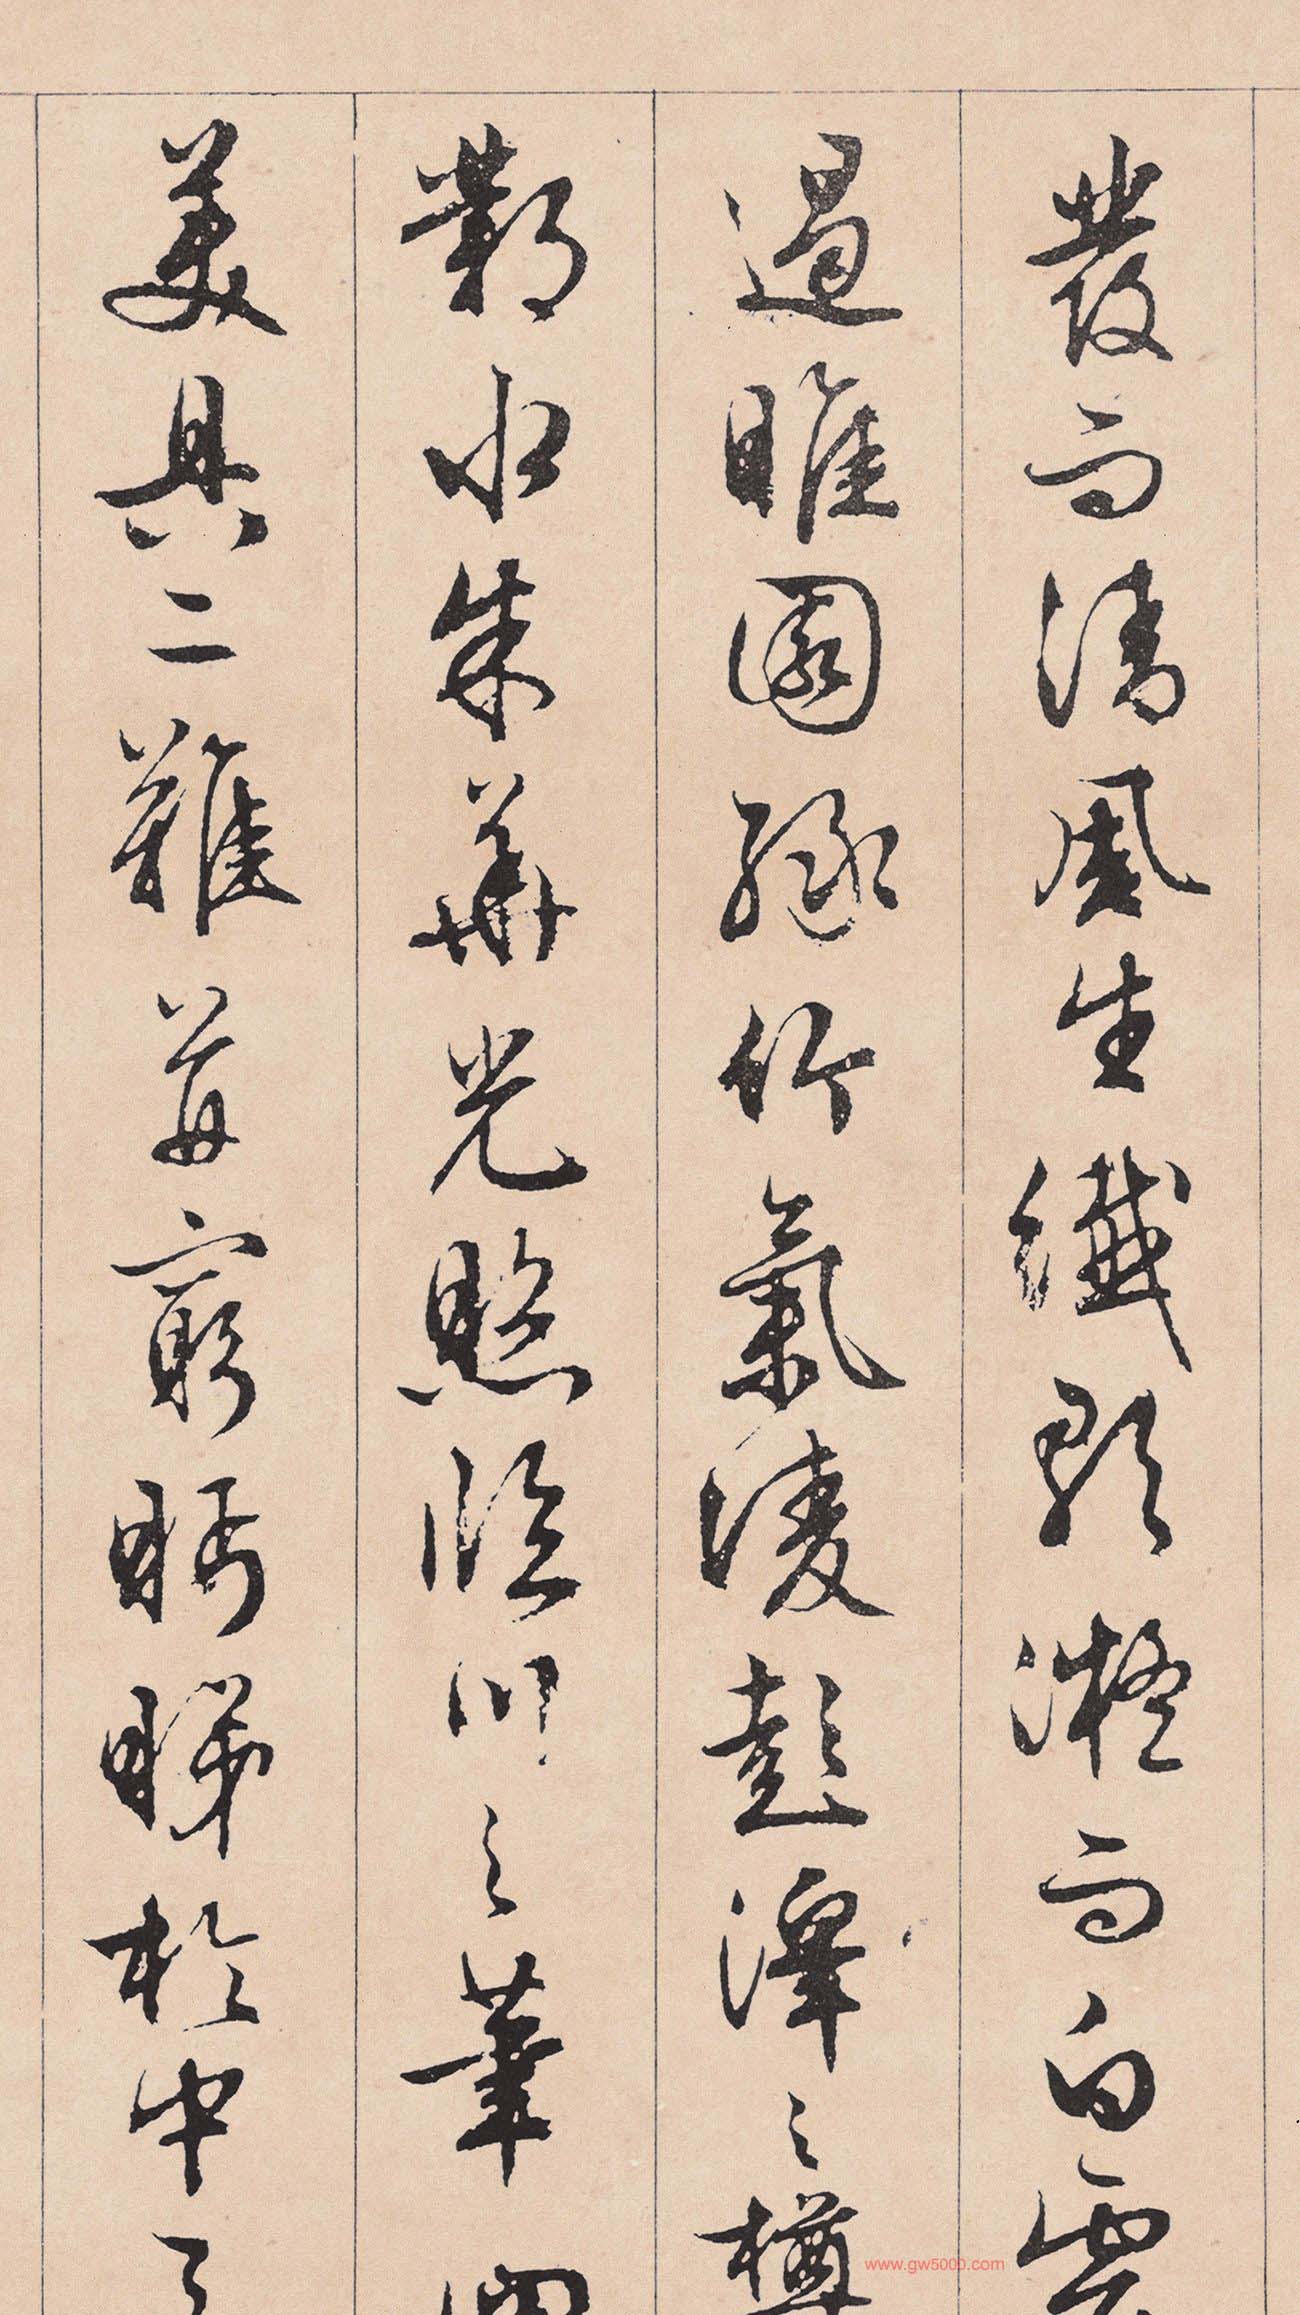 發而清風生纖歌凝而白雲
遏睢園綠竹氣淩彭澤之樽
鄴水朱華光照臨川之筆四
美具二難并窮眄睇於中
www.gw5000.com